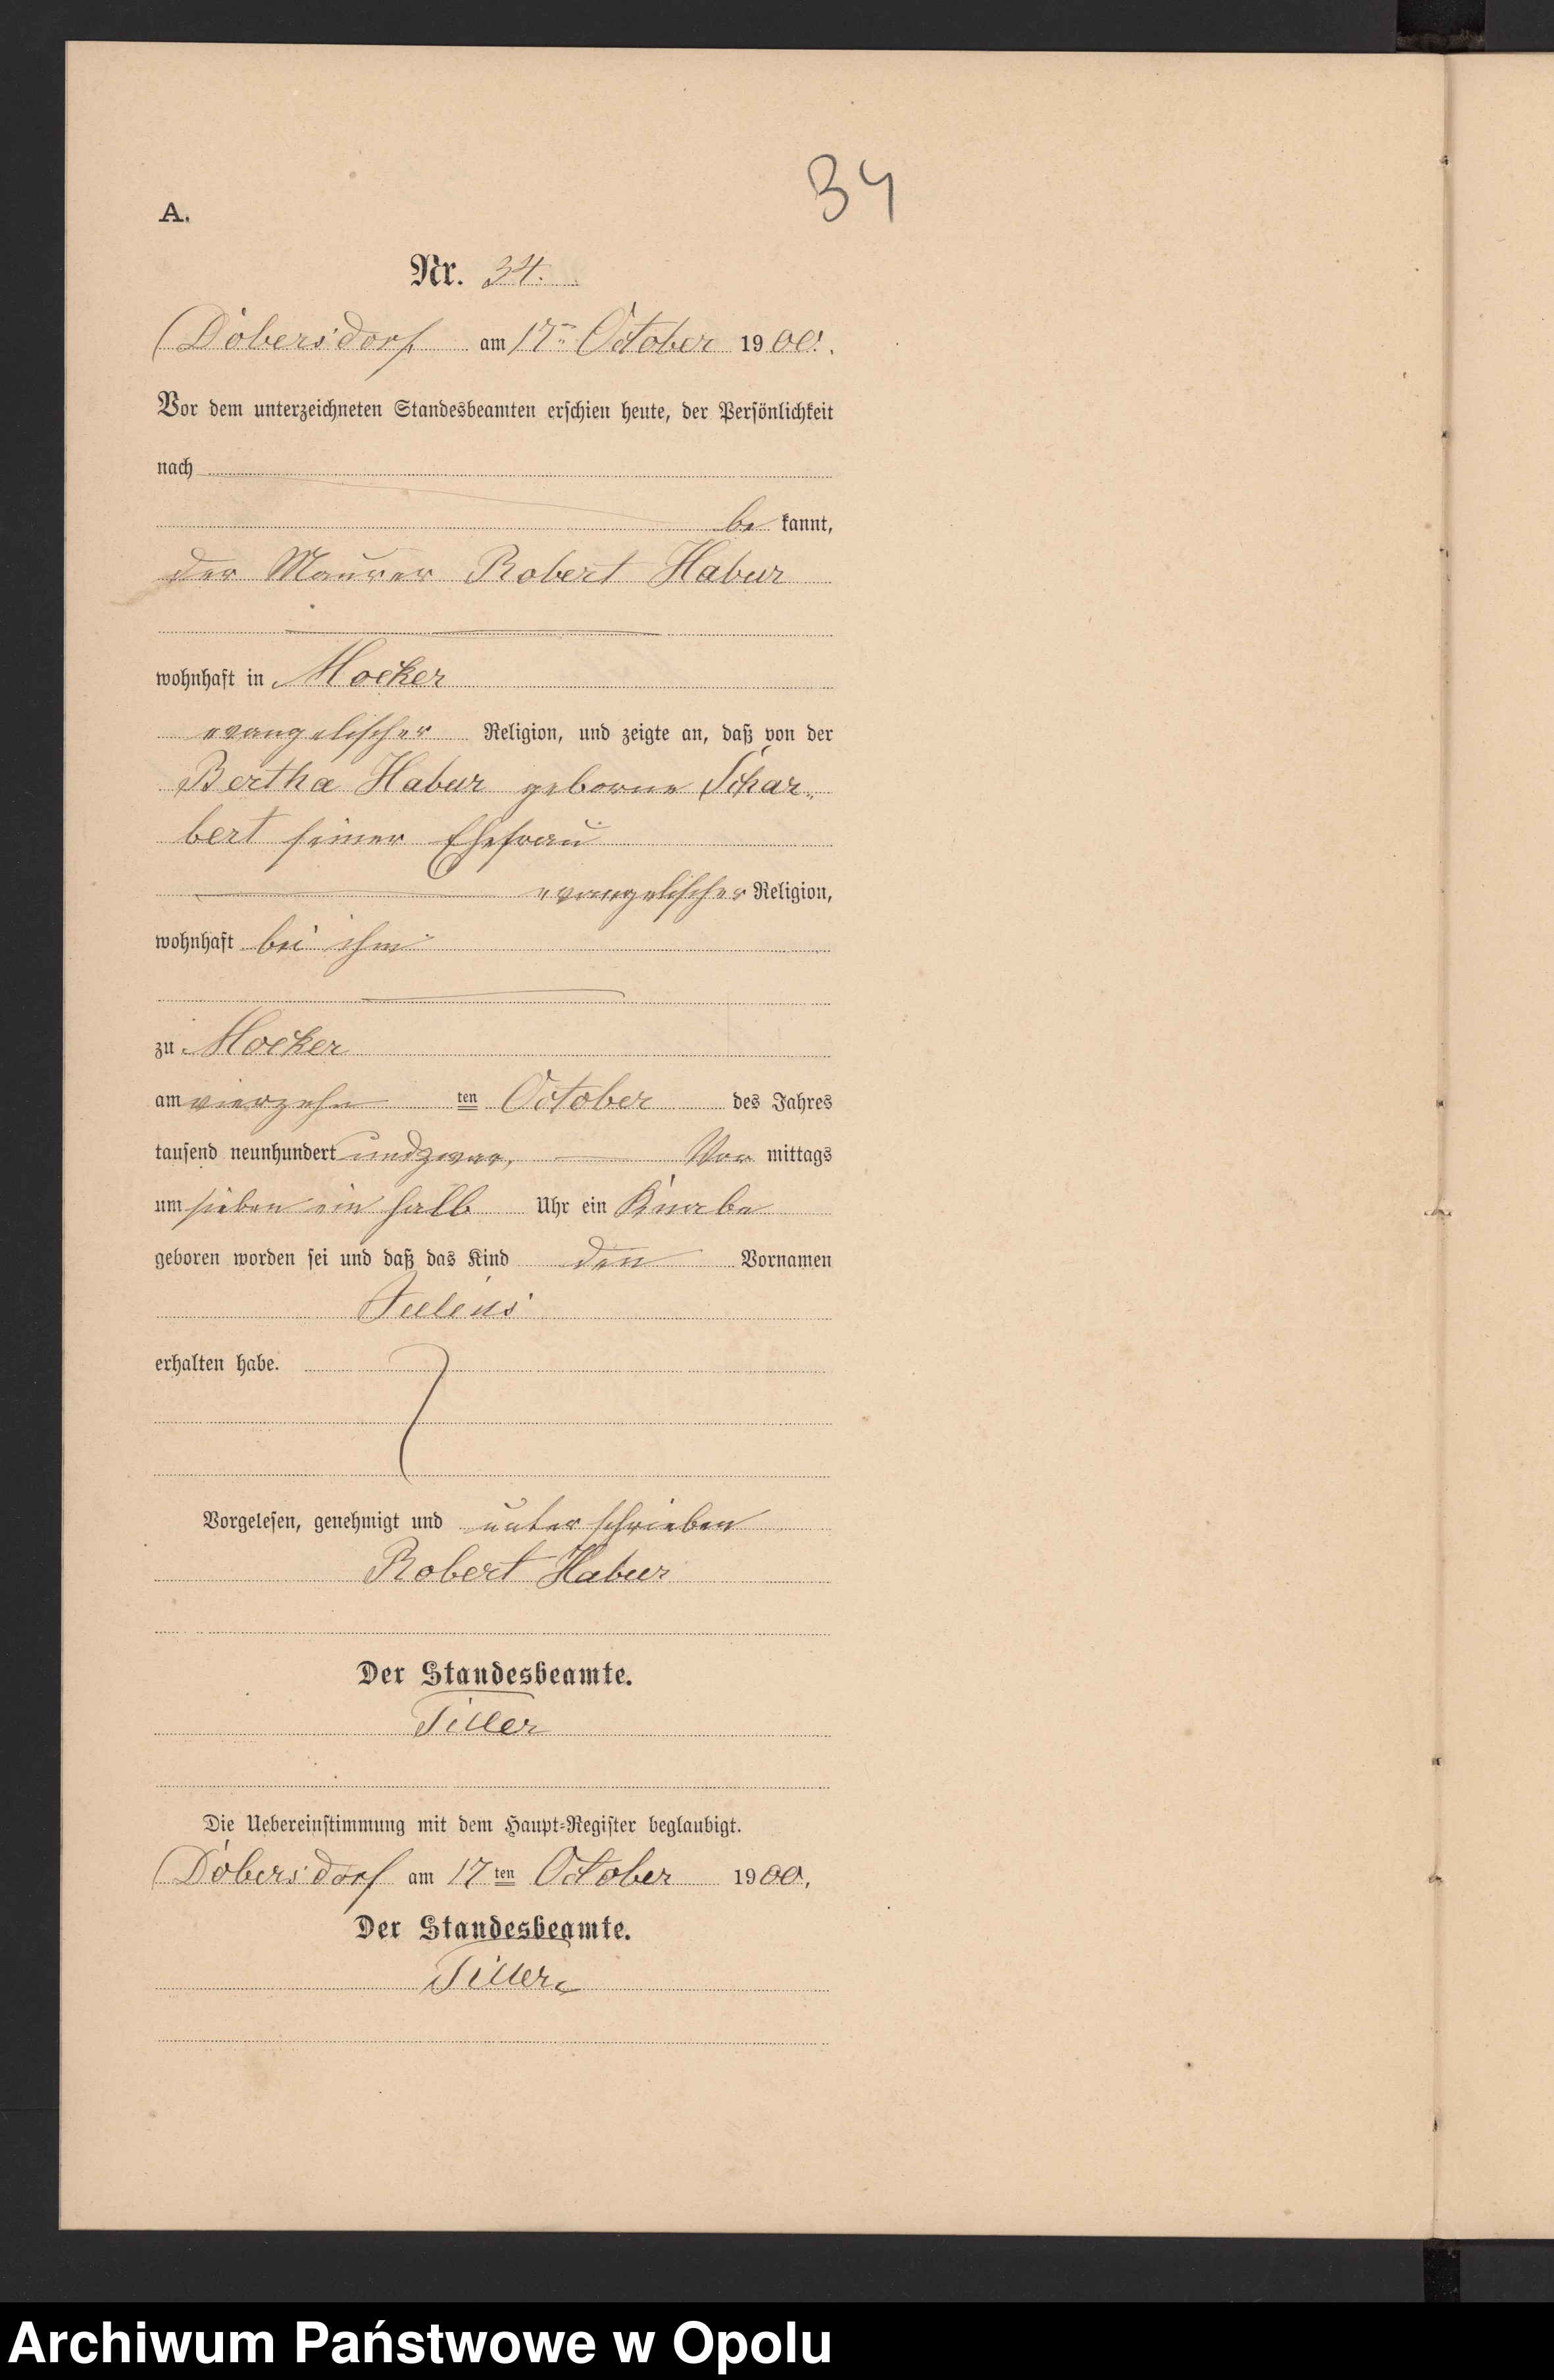 34
A.
Nr. 34.
Dobersdorf am 17ten October 1900.
Vor dem unterzeichneten Standesbeamten erschien heute, der Persönlichkeit
nach
be kannt,
der Maurer Robert Habur
wohnhaft in Mocker
evangelischer Religion, und zeigte an, daß von der
Bertha Habur geborne Schar„
bert seiner Ehefrau
evangelischer Religion,
wohnhaft bei ihm
zu Mocker
am vierzehn ten October des Jahres
tausend neunhundert und zwar, Vor mittags
um sieben ein halb Uhr ein Knabe
geboren worden sei und daß das Kind den Vornamen
Julius
erhalten habe.
Vorgelesen, genehmigt und unterschrieben
Robert Habur
Der Standesbeamte.
Tiller
Die Uebereinstimmung mit dem Haupt-Register beglaubigt.
Dobersdorf am 17 ten October 1900,
Der Standesbeamte.
Tiller
Archiwum Państwowe w Opolu